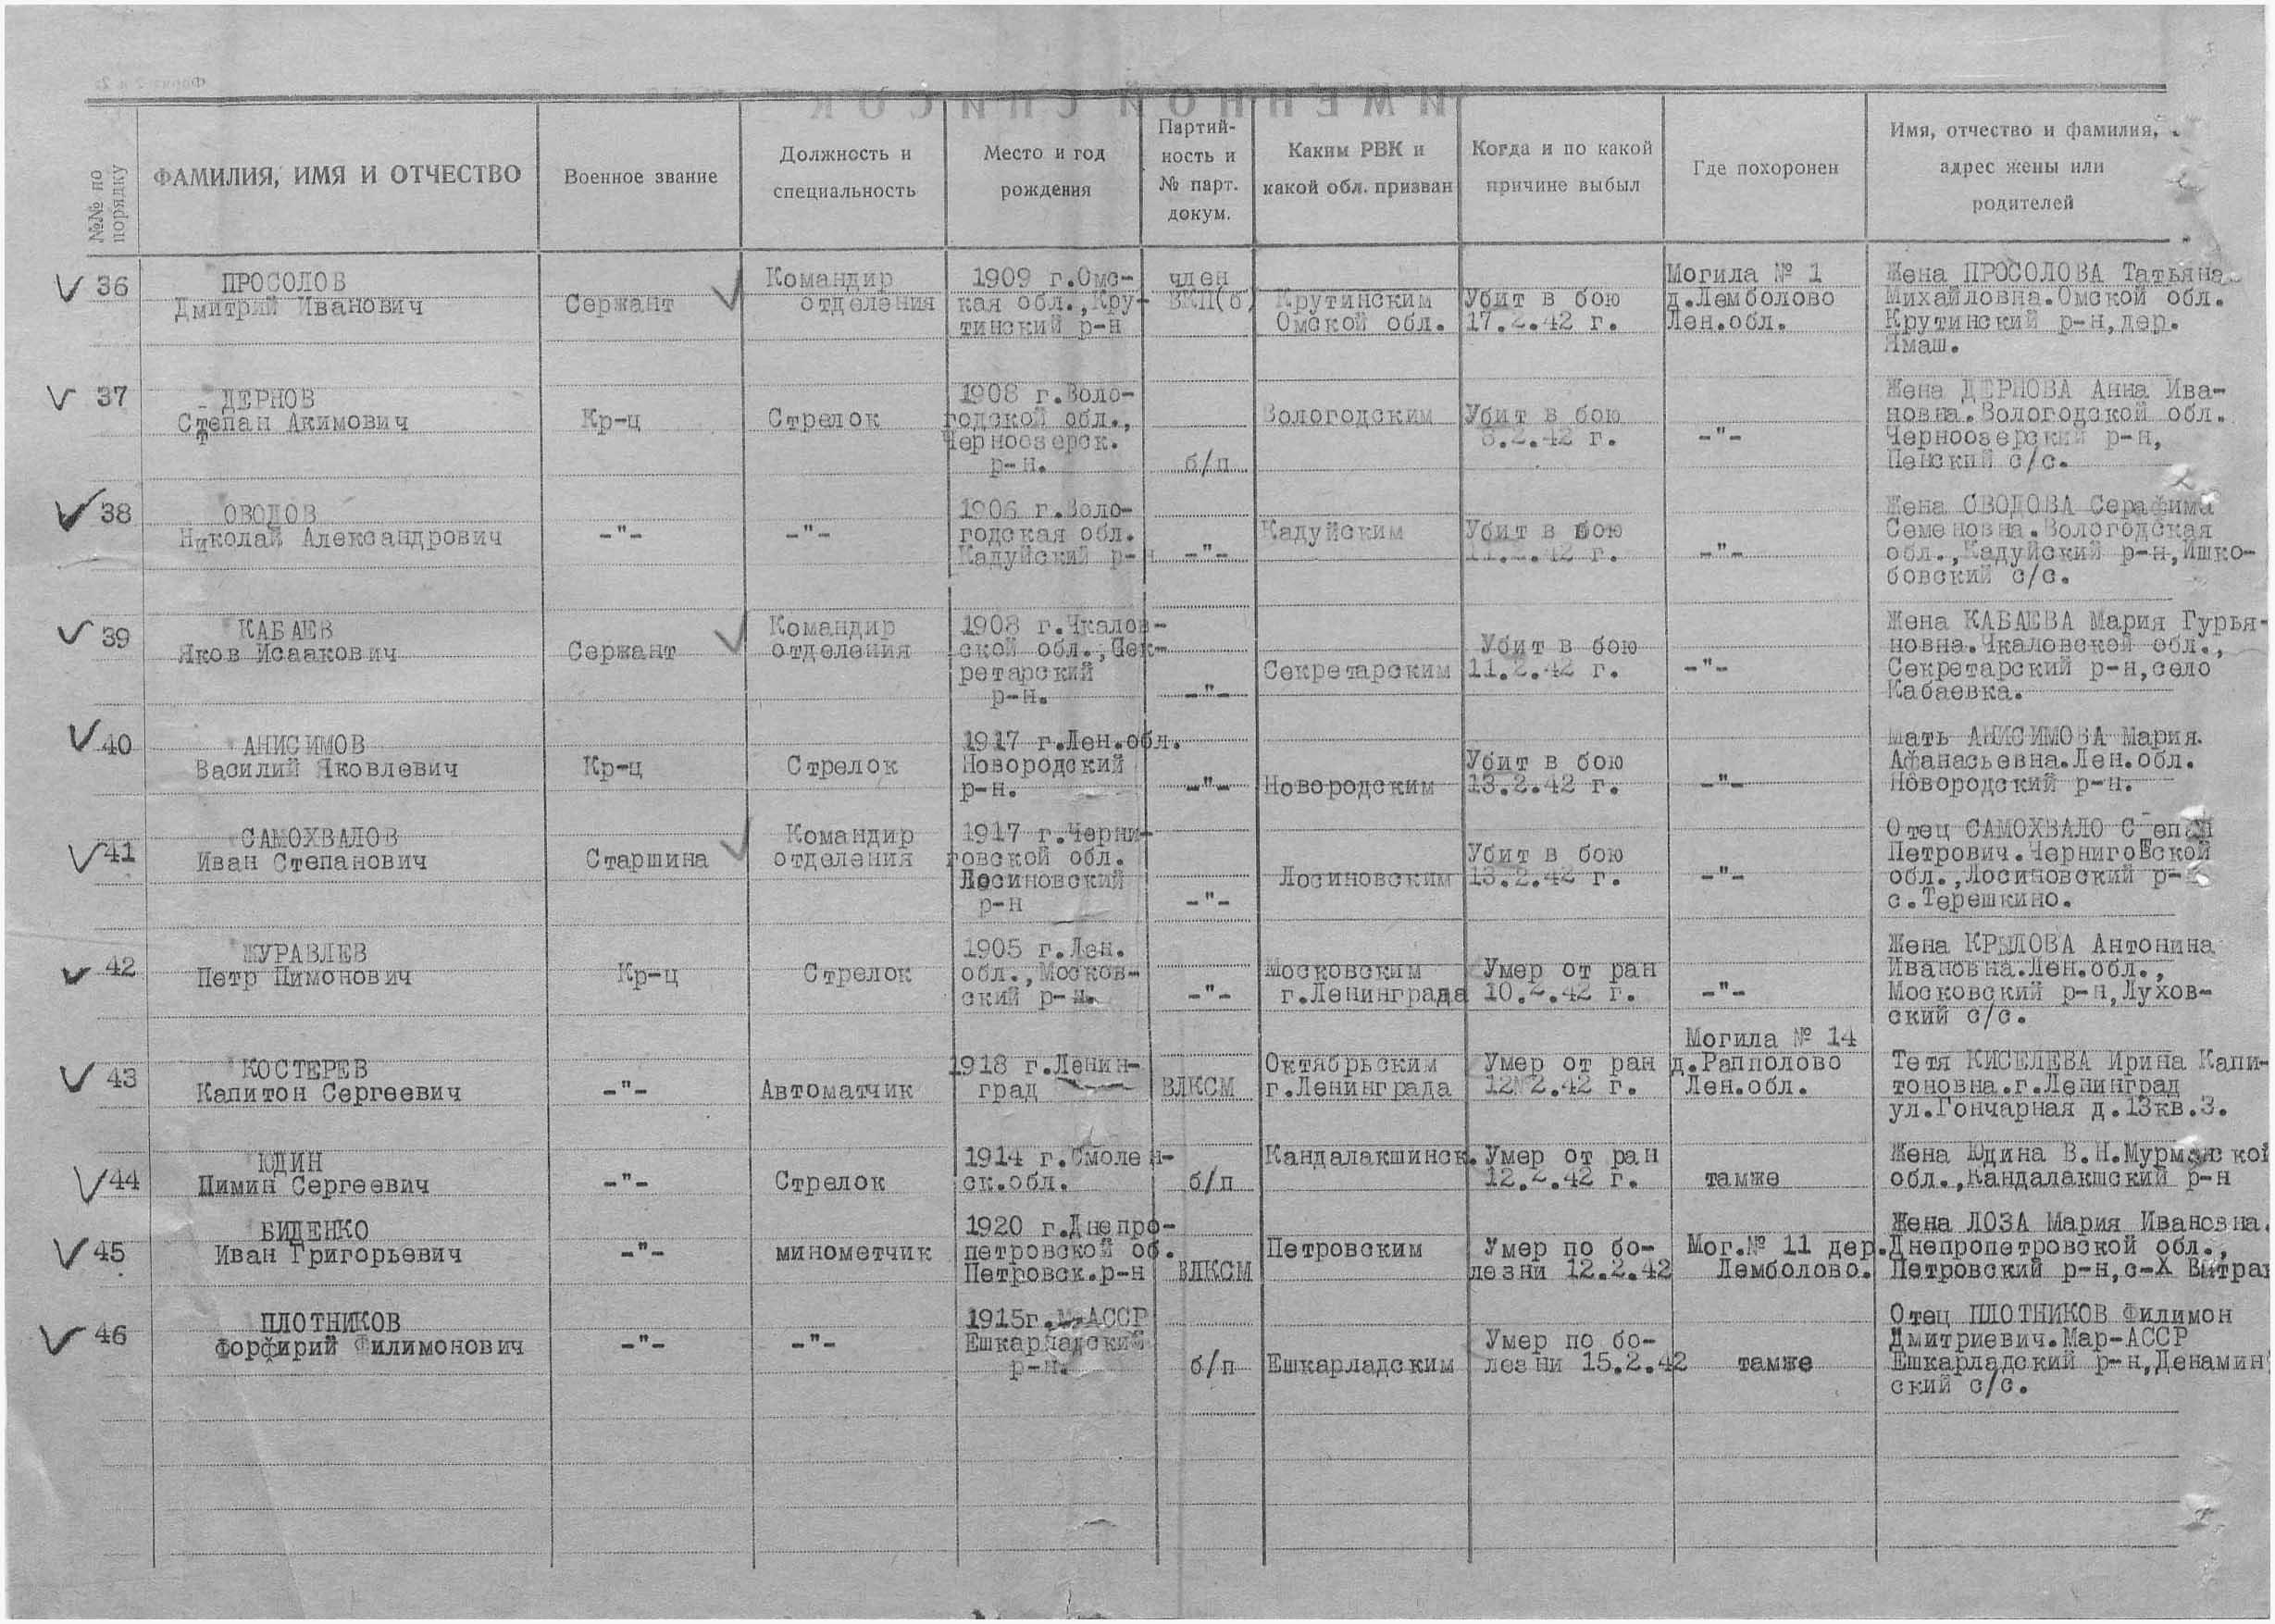 ИМЕННОЙ СПИСОК
№№ по порядку
ФАМИЛИЯ, ИМЯ И ОТЧЕСТВО
Военное звание
Должность и
специальность
Место и год
рождения
Партий-
ность и
№ парт.
докум.
Каким РВК и
какой обл. призван
Когда и по какой
причине выбыл
Где похоронен
Имя, отчество и фамилия,
адрес жены или
родителей
36
ПРОСОЛОВ
Дмитрий Иванович
Сержант
Командир
отделения
1909 г.Омс-
кая обл.,Кру-
тинский р-н
член
ВКП(б)
Крутинским
Омской обл.
Убит в бою
17.2.42 г.
Могила № 1
д.Лемболово
Лен.обл.
Жена ПРОСОЛОВА Татьяна
Михайловна.Омской обл.
Крутинский р-н,дер.
Ямаш.
37
ДЕРНОВ
Степан Акимович
Кр-ц
Стрелок
1908 г.Воло-
годской обл.,
Черноозерск.
р-н.
б/п
Вологодским
Убит в бою
8.2.42 г.
-"-
Жена ДЕРНОВА Анна Ива-
новна.Вологодской обл.
Черноозерский р-н,
Пенский с/с.
38
ОВОДОВ
Николай Александрович
-"-
-"-
1906 г.Воло-
годская обл.
Кадуйский р-н
-"-
Кадуйским
Убит в бою
11.2.42 г.
-"-
Жена ОВОДОВА Серафима
Семеновна.Вологодская
обл.,Кадуйский р-н,Ишко-
бовский с/с.
39
КАБАЕВ
Яков Исаакович
Сержант
Командир
отделения
1908 г.Чкалов-
ской обл.,Сек-
ретарский
р-н.
-"-
Секретарским
Убит в бою
11.2.42 г.
-"-
Жена КАБАЕВА Мария Гурья-
новна.Чкаловской обл.,
Секретарский р-н,село
Кабаевка.
40
АНИСИМОВ
Василий Яковлевич
Кр-ц
Стрелок
1917 г.Лен.обл.
Новородский
р-н.
-"-
Новородским
Убит в бою
13.2.42 г.
-"-
Мать АНИСИМОВА Мария.
Афанасьевна.Лен.обл.
Новородский р-н.
41
САМОХВАЛОВ
Иван Степанович
Старшина
Командир
отделения
1917 г.Черни-
говской обл.
Лосиновский
р-н
-"-
Лосиновским
Убит в бою
13.2.42 г.
-"-
Отец САМОХВАЛО Степан
Петрович.Черниговской
обл.,Лосиновский р-
с.Терешкино.
42
ЖУРАВЛЕВ
Петр Пимонович
Кр-ц
Стрелок
1905 г.Лен.
обл.,Москов-
ский р-н.
-"-
Московским
г.Ленинграда
Умер от ран
10.2.42 г.
-"-
Жена КРЫЛОВА Антонина
Ивановна.Лен.обл.,
Московский р-н,Лухов-
ский с/с.
43
КОСТЕРЕВ
Капитон Сергеевич
-"-
Автоматчик
1918 г.Ленин-
град
ВЛКСМ
Октябрьским
г.Ленинграда
Умер от ран
12.2.42 г.
Могила № 14
д.Рапполово
Лен.обл.
Тетя КИСЕЛЕВА Ирина Капи-
тоновна.г.Ленинград
ул.Гончарная д.13кв.3.
44
ЮДИН
Пимин Сергеевич
-"-
Стрелок
1914 г.Смолен-
ск.обл.
б/п
Кандалакшинск.
Умер от ран
12.2.42 г.
тамже
Жена Юдина В.Н.Мурманской
обл.,Кандалакшский р-н
45
БИДЕНКО
Иван Григорьевич
-"-
минометчик
1920 г.Днепро-
петровской об.
Петровск.р-н
ВЛКСМ
Петровским
Умер по бо-
лезни 12.2.42
Мог.№ 11 дер.
Лемболово.
Жена ЛОЗА Мария Ивановна.
Днепропетровской обл.,
Петровский р-н,с-Х Витран
46
ПЛОТНИКОВ
Форфирий Филимонович
-"-
-"-
1915г.М-АССР
Ешкарладский
р-н.
б/п
Ешкарладским
Умер по бо-
лезни 15.2.42
тамже
Отец ПЛОТНИКОВ Филимон
Дмитриевич.Мар-АССР
Ешкарладский р-н,Денамин
ский с/с.